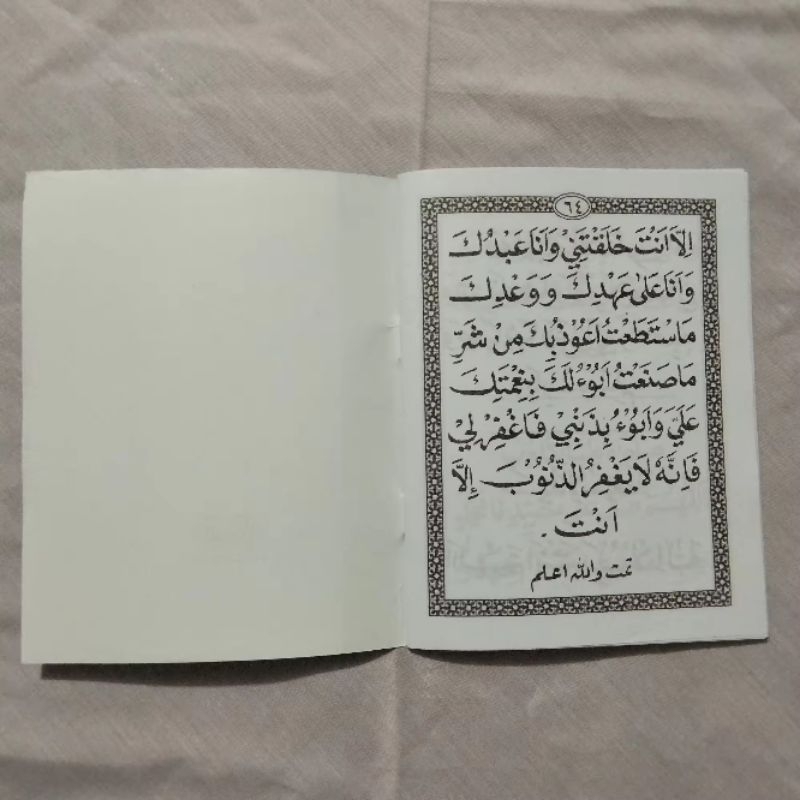 ٦٤
اِلَّا اَنْتَ خَلَقْتَنِيْ وَاَنَا عَبْدُكَ
وَاَنَا عَلٰى عَهْدِكَ وَوَعْدِكَ
مَاسْتَطَعْتُ اَعُوْذُ بِكَ مِنْ شَرِّ
مَاصَنَعْتُ اَبُوْءُ لَكَ بِنِعْمَتِكَ
عَلَيَّ وَاَبُوْءُ بِذَنْبِيْ فَاغْفِرْلِيْ
فَاِنَّهُ لَا يَغْفِرُ الذُّنُوْبَ اِلَّا
اَنْتَ .
تمت والله اعلم